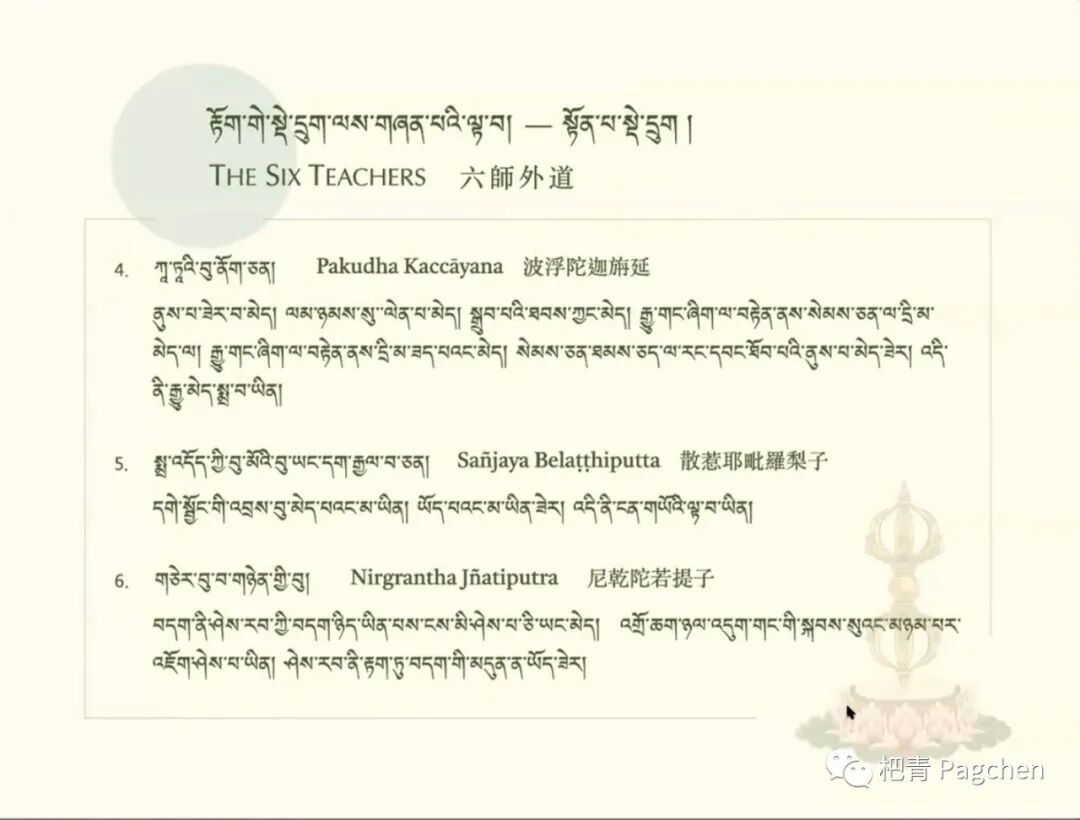 རྟོག་གེ་སྡེ་དྲུག་ལས་གཞན་པའི་ལྟ་བ། — སྟོན་པ་སྡེ་དྲུག །
THE SIX TEACHERS 六師外道
4. ཀཱ་ཏྱཱའི་བུ་ནོག་ཅན། Pakudha Kaccāyana 波浮陀迦旃延
ནུས་པ་ཟེར་བ་མེད། ལམ་ཉམས་སུ་ལེན་པ་མེད། སྒྲུབ་པའི་ཐབས་ཀྱང་མེད། རྒྱུ་གང་ཞིག་ལ་བརྟེན་ནས་སེམས་ཅན་ལ་དྲི་མ་
མེད་ལ། རྒྱུ་གང་ཞིག་ལ་བརྟེན་ནས་དྲི་མ་ཟད་པའང་མེད། སེམས་ཅན་ཐམས་ཅད་ལ་རང་དབང་ཐོབ་པའི་ནུས་པ་མེད་ཟེར། འདི་
ནི་རྒྱུ་མེད་སྨྲ་བ་ཡིན།
5. སྨྲ་འདོད་ཀྱི་བུ་མོའི་བུ་ཡང་དག་རྒྱལ་བ་ཅན། Sañjaya Belaṭṭhiputta 散惹耶毗羅梨子
དགེ་སྦྱོང་གི་འབྲས་བུ་མེད་པའང་མ་ཡིན། ཡོད་པའང་མ་ཡིན་ཟེར། འདི་ནི་ངན་གཡོའི་ལྟ་བ་ཡིན།
6. གཅེར་བུ་བ་གཉེན་གྱི་བུ། Nirgrantha Jñatiputra 尼乾陀若提子
བདག་ནི་ཤེས་རབ་ཀྱི་བདག་ཉིད་ཡིན་པས་ངས་མི་ཤེས་པ་ཅི་ཡང་མེད། འགྲོ་ཆག་ཉལ་འདུག་གང་གི་སྐབས་སུའང་མཉམ་པར་
འཇོག་ཤེས་པ་ཡིན། ཤེས་རབ་ནི་རྟག་ཏུ་བདག་གི་མདུན་ན་ཡོད་ཟེར།
杷青 Pagchen